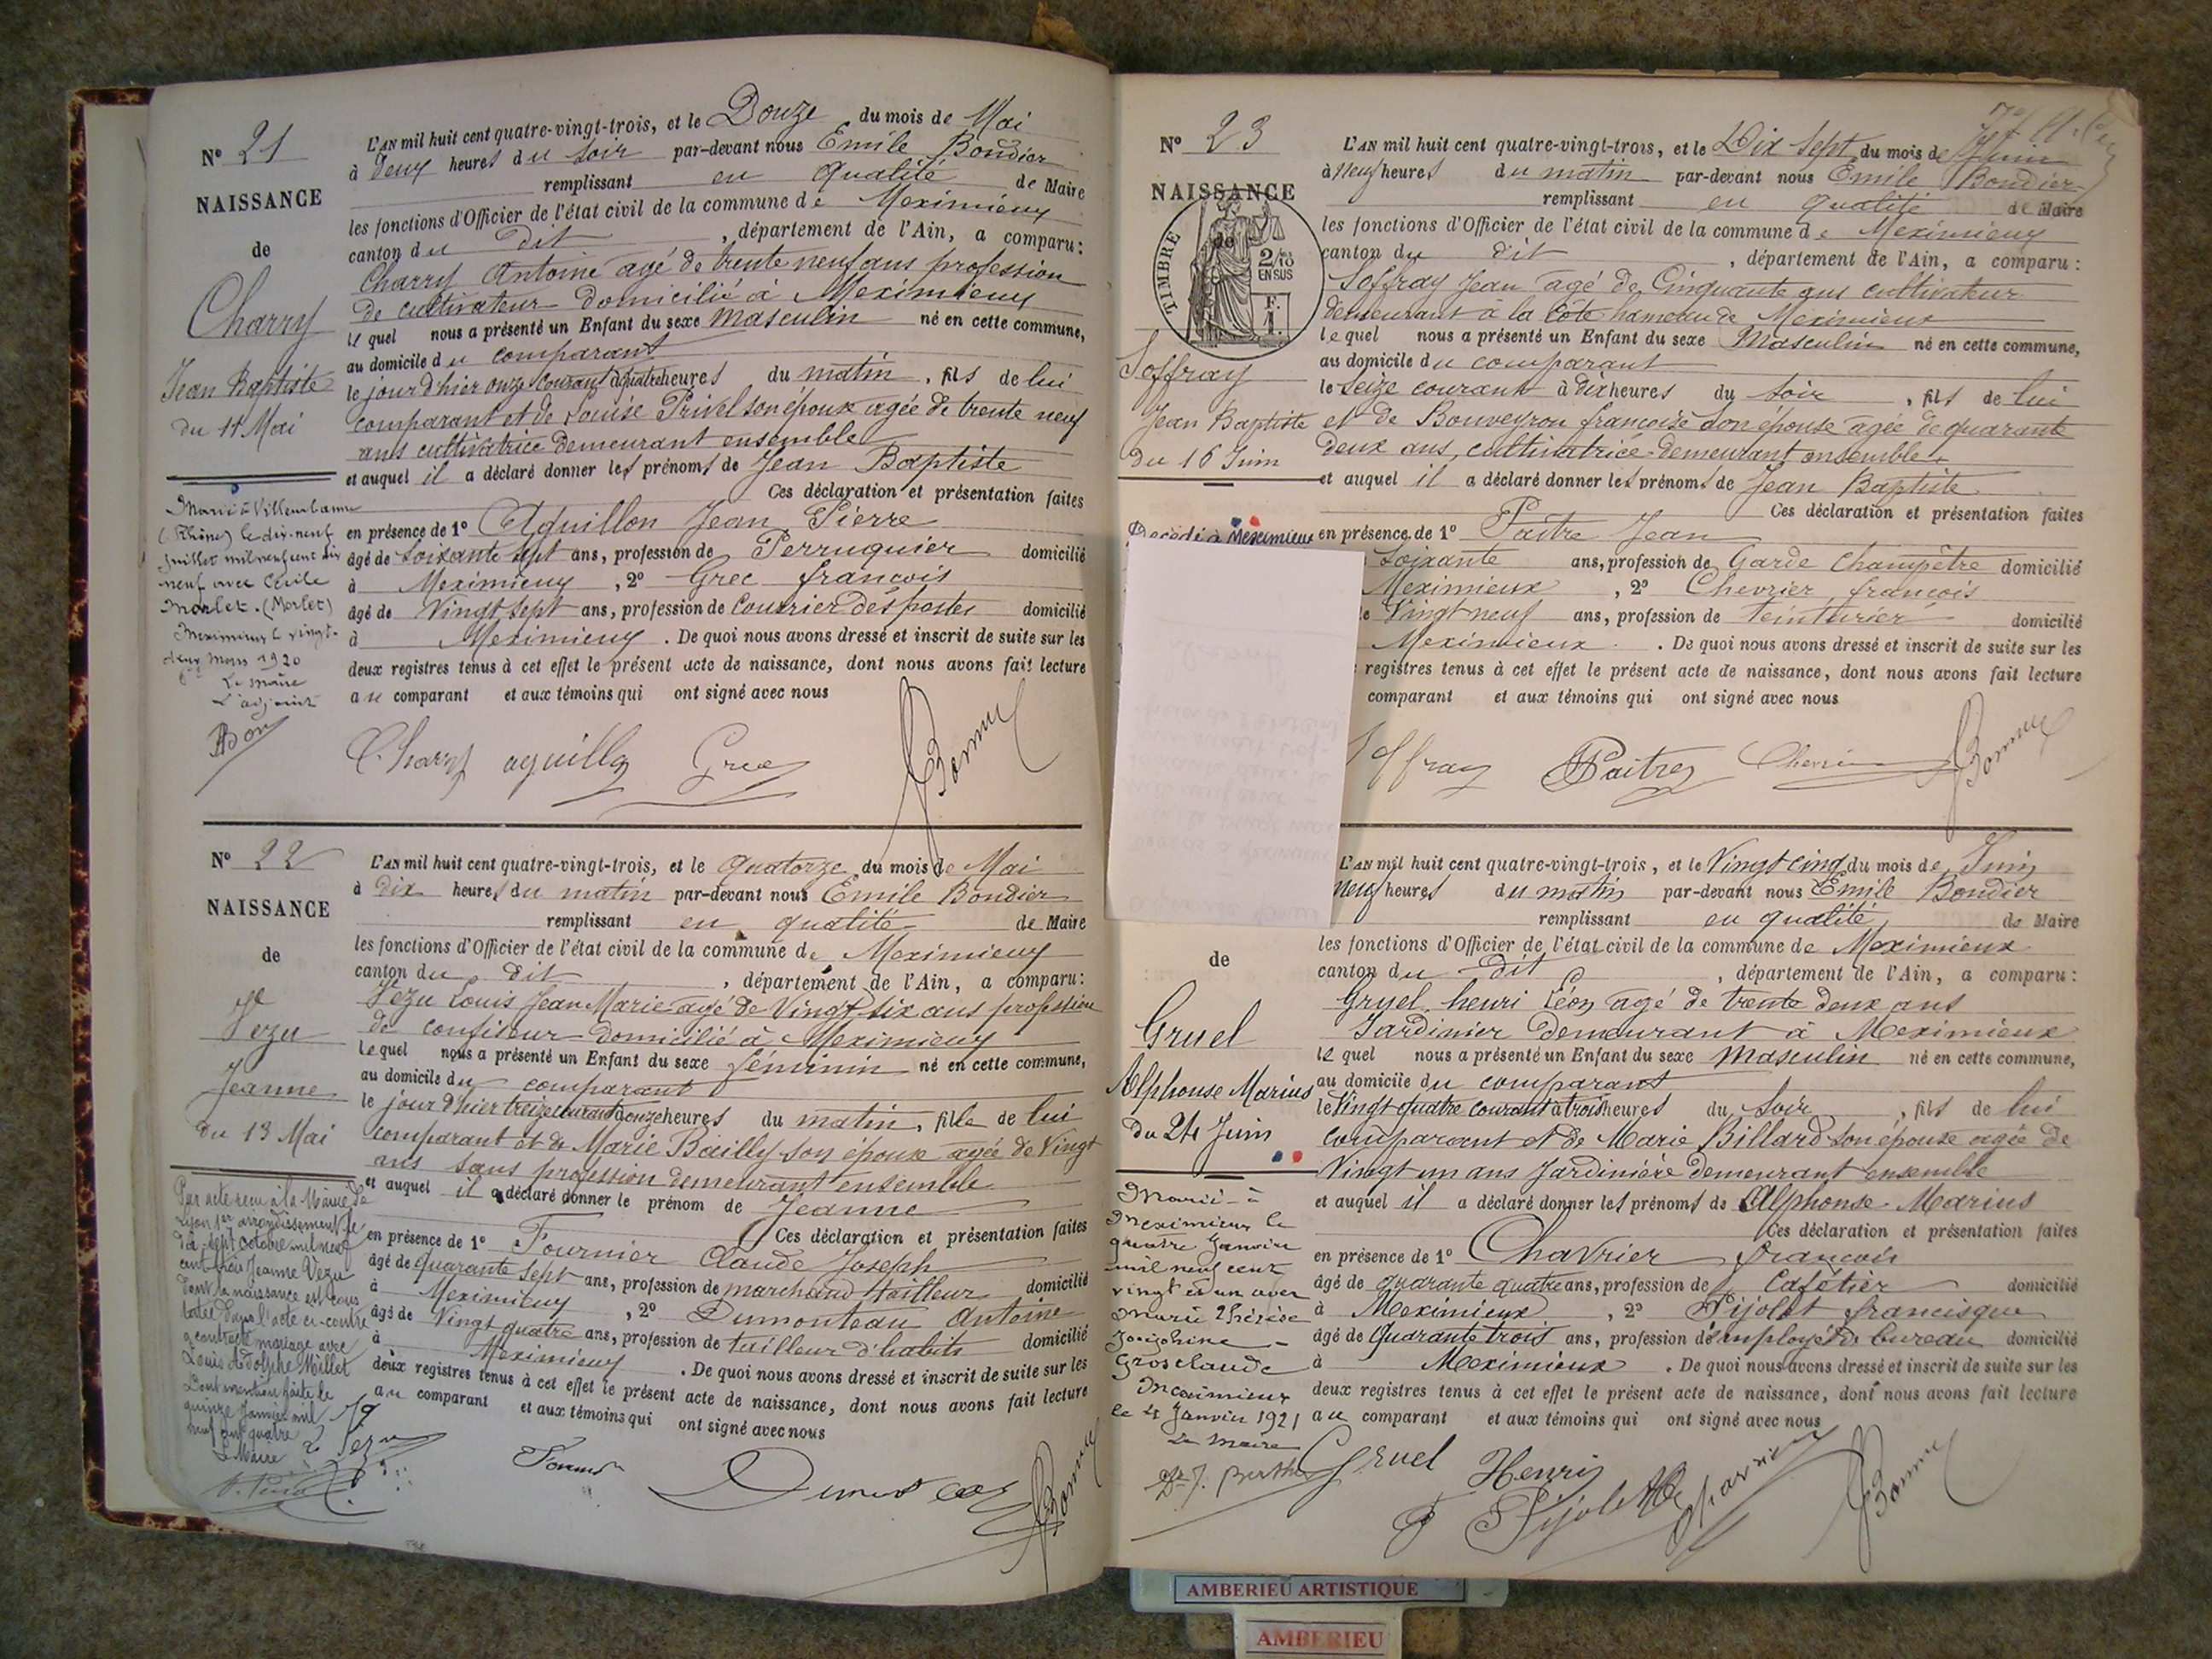 N° 21
NAISSANCE
de
Charry
Jean Baptiste
du 11 Mai
Marié à Villeurbanne
(Rhône) le dix-neuf
juillet mil neuf cent dix
neuf avec Cécile
Morlet. (Merlet)
Meximieux le vingt-
deux Mars 1920
Le Maire
L'adjoint
L'AN mil huit cent quatre-vingt-trois, et le Douze du mois de Mai
à Deux heures du soir par-devant nous Emile Bondier
remplissant en qualité de Maire
les fonctions d'Officier de l'état civil de la commune de Meximieux
canton du dit, département de l'Ain, a comparu:
Charry Antoine agé de trente neuf ans profession
de cultivateur domicilié à Meximieux
lequel nous a présenté un Enfant du sexe masculin né en cette commune,
au domicile du comparant
le jour d'hier onze courant à quatre heures du matin, fils de lui
comparant et de Louise Privel son épouse agée de trente neuf
ans cultivatrice demeurant ensemble
et auquel il a déclaré donner les prénoms de Jean Baptiste
Ces déclaration et présentation faites
en présence de 1° Aguillon Jean Pierre
âgé de soixante sept ans, profession de Perruquier domicilié
à Meximieux, 2° Grec françois
âgé de Vingt sept ans, profession de Courrier des postes domicilié
à Meximieux. De quoi nous avons dressé et inscrit de suite sur les
deux registres tenus à cet effet le présent acte de naissance, dont nous avons fait lecture
au comparant et aux témoins qui ont signé avec nous
Charry aguillon Grec
N° 22
NAISSANCE
de
Vezu
Jeanne
du 13 Mai
Par acte reçu à la Mairie de
Lyon 1er arrondissement le
dix-sept octobre mil neuf
cent trois Jeanne Vezu
dont la naissance est cons
tatée dans l'acte ci-contre
a contracté mariage avec
Louis Adolphe Millet
Dont mention faite le
quinze Janvier mil
neuf cent quatre
Le Maire
L'AN mil huit cent quatre-vingt-trois, et le quatorze du mois de Mai
à dix heures du matin par-devant nous Emile Bondier
remplissant en qualité de Maire
les fonctions d'Officier de l'état civil de la commune de Meximieux
canton du dit, département de l'Ain, a comparu:
Vezu Louis Jean Marie agé de Vingt six ans profession
de confiseur domicilié à Meximieux
lequel nous a présenté un Enfant du sexe féminin né en cette commune,
au domicile du comparant
le jour d'hier treize courant à onze heures du matin, fille de lui
comparant et de Marie Bailly son épouse agée de Vingt
ans sans profession demeurant ensemble
et auquel il a déclaré donner le prénom de Jeanne
Ces déclaration et présentation faites
en présence de 1° Fournier Claude Joseph
âgé de quarante sept ans, profession de marchand tailleur domicilié
à Meximieux, 2° Dumonteau Antoine
âgé de Vingt quatre ans, profession de tailleur d'habits domicilié
à Meximieux. De quoi nous avons dressé et inscrit de suite sur les
deux registres tenus à cet effet le présent acte de naissance, dont nous avons fait lecture
au comparant et aux témoins qui ont signé avec nous
Vezu
N° 23
NAISSANCE
de
TIMBRE
2/10
EN SUS
F.
1.
Soffray
Jean Baptiste
du 16 Juin
Décédé à Meximieux
L'AN mil huit cent quatre-vingt-trois, et le Dix Sept du mois de Juin
à Neuf heures du matin par-devant nous Emile Bondier
remplissant en qualité de Maire
les fonctions d'Officier de l'état civil de la commune de Meximieux
canton du dit, département de l'Ain, a comparu:
Soffray Jean agé de Cinquante ans cultivateur
demeurant à la Côte hameau de Meximieux
lequel nous a présenté un Enfant du sexe Masculin né en cette commune,
au domicile du comparant
le seize courant à dix heures du soir, fils de lui
et de Bouveyron françoise son épouse agée de quarante
deux ans, cultivatrice demeurant ensemble
et auquel il a déclaré donner les prénoms de Jean Baptiste
Ces déclaration et présentation faites
en présence de 1° Paitre Jean
soixante ans, profession de Garde Champêtre domicilié
Meximieux, 2° Chevrier françois
Vingt neuf ans, profession de teinturier domicilié
Meximieux. De quoi nous avons dressé et inscrit de suite sur les
registres tenus à cet effet le présent acte de naissance, dont nous avons fait lecture
comparant et aux témoins qui ont signé avec nous
Soffray Paitre
de
Gruel
Alphonse Marius
du 24 Juin
Marié à
Meximieux le
quatre Janvier
mil neuf cent
vingt et un avec
Marie Thérèse
Joséphine
Grosclaude
Meximieux
le 4 Janvier 1921
Le Maire
L'AN mil huit cent quatre-vingt-trois, et le Vingt cinq du mois de Juin
neuf heures du matin par-devant nous Emile Bondier
remplissant en qualité de Maire
les fonctions d'Officier de l'état civil de la commune de Meximieux
canton du dit, département de l'Ain, a comparu:
Gruel henri Léon agé de trente deux ans
Jardinier demeurant à Meximieux
lequel nous a présenté un Enfant du sexe Masculin né en cette commune,
au domicile du comparant
le Vingt quatre courant à trois heures du soir, fils de lui
comparant et de Marie Billard son épouse agée de
Vingt un ans Jardinière demeurant ensemble
et auquel il a déclaré donner les prénoms de Alphonse Marius
Ces déclaration et présentation faites
en présence de 1° Chavrier françois
âgé de quarante quatre ans, profession de Cafetier domicilié
à Meximieux, 2° Pijolet francisque
âgé de Quarante trois ans, profession d'employé de bureau domicilié
à Meximieux. De quoi nous avons dressé et inscrit de suite sur les
deux registres tenus à cet effet le présent acte de naissance, dont nous avons fait lecture
au comparant et aux témoins qui ont signé avec nous
Gruel Henri
Chavrier
F Pijolet
AMBERIEU ARTISTIQUE
AMBERIEU